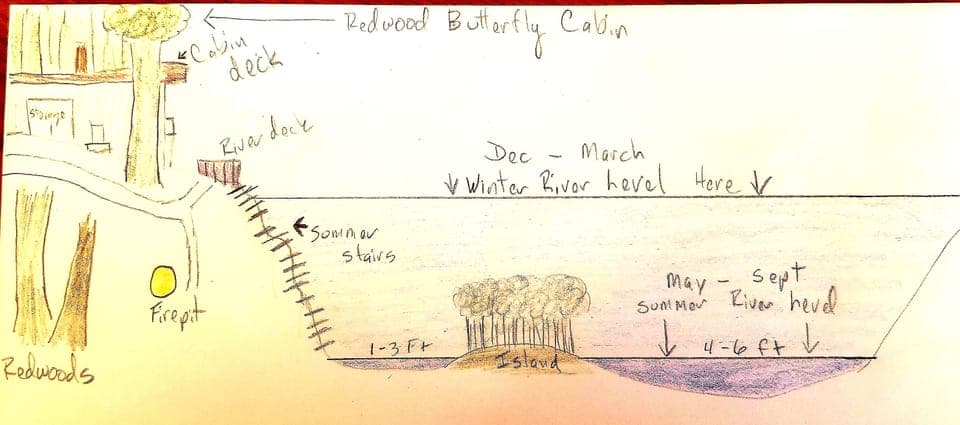 Redwood Butterfly Cabin
Cabin
deck
Storage
River deck
Dec - March
Winter River Level Here
Summer
stairs
May - Sept
Summer River Level
Firepit
1-3 Ft
4-6 ft
Island
Redwoods